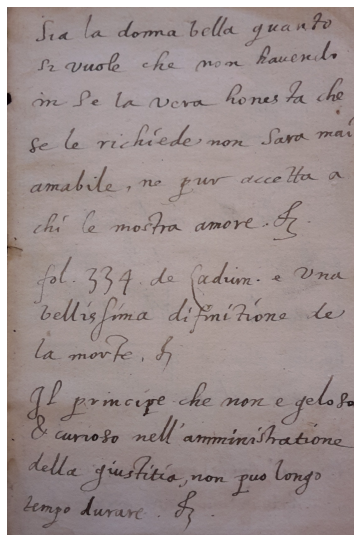 Sia la donna bella quanto
si vuole che non havendo
in se la vera honesta che
se le richiede non sara mai
amabile, ne pur accetta a
chi le mostra amore.
fol. 334 de e una
bellissima difinitione de
la morte.
Il principe che non e geloso
& curioso nell'amministratione
della giustitia, non puo longo
tempo durare.